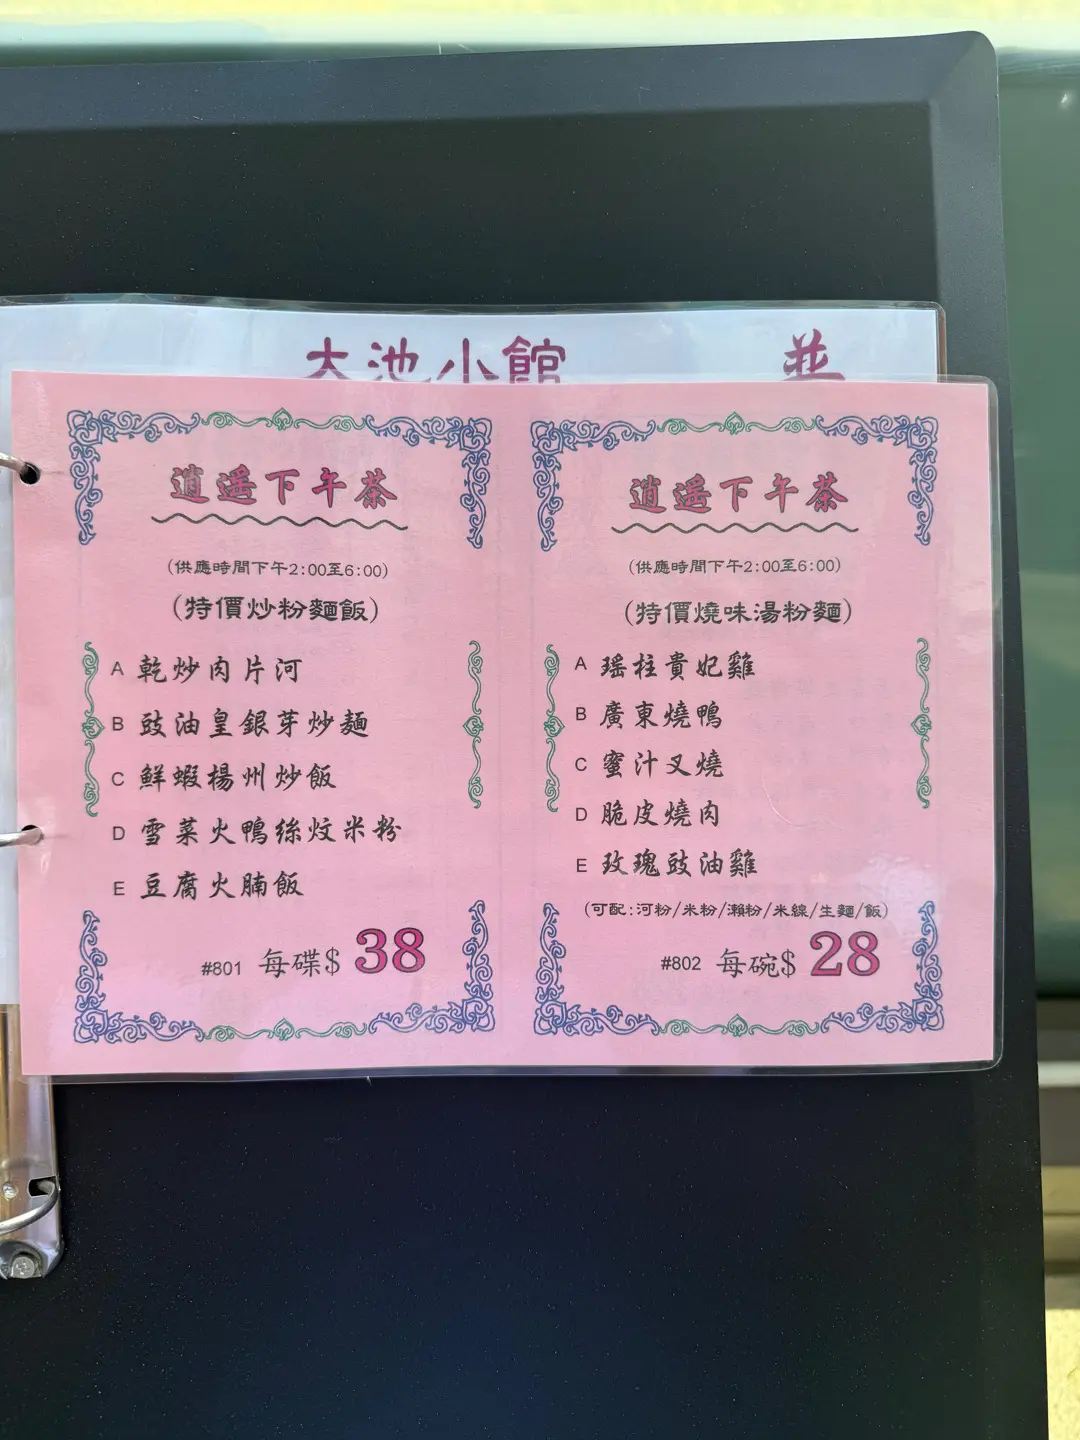 大池小館
逍遥下午茶
(供應時間下午2:00至6:00)
(特價炒粉麵飯)
A 乾炒肉片河
B 豉油皇銀芽炒麵
C 鮮蝦楊州炒飯
D 雪菜火鴨絲炆米粉
E 豆腐火腩飯
#801 每碟$ 38
逍遥下午茶
(供應時間下午2:00至6:00)
(特價燒味湯粉麵)
A 瑶柱貴妃雞
B 廣東燒鴨
C 蜜汁叉燒
D 脆皮燒肉
E 玫瑰豉油雞
(可配:河粉/米粉/瀨粉/米線/生麵/飯)
#802 每碗$ 28